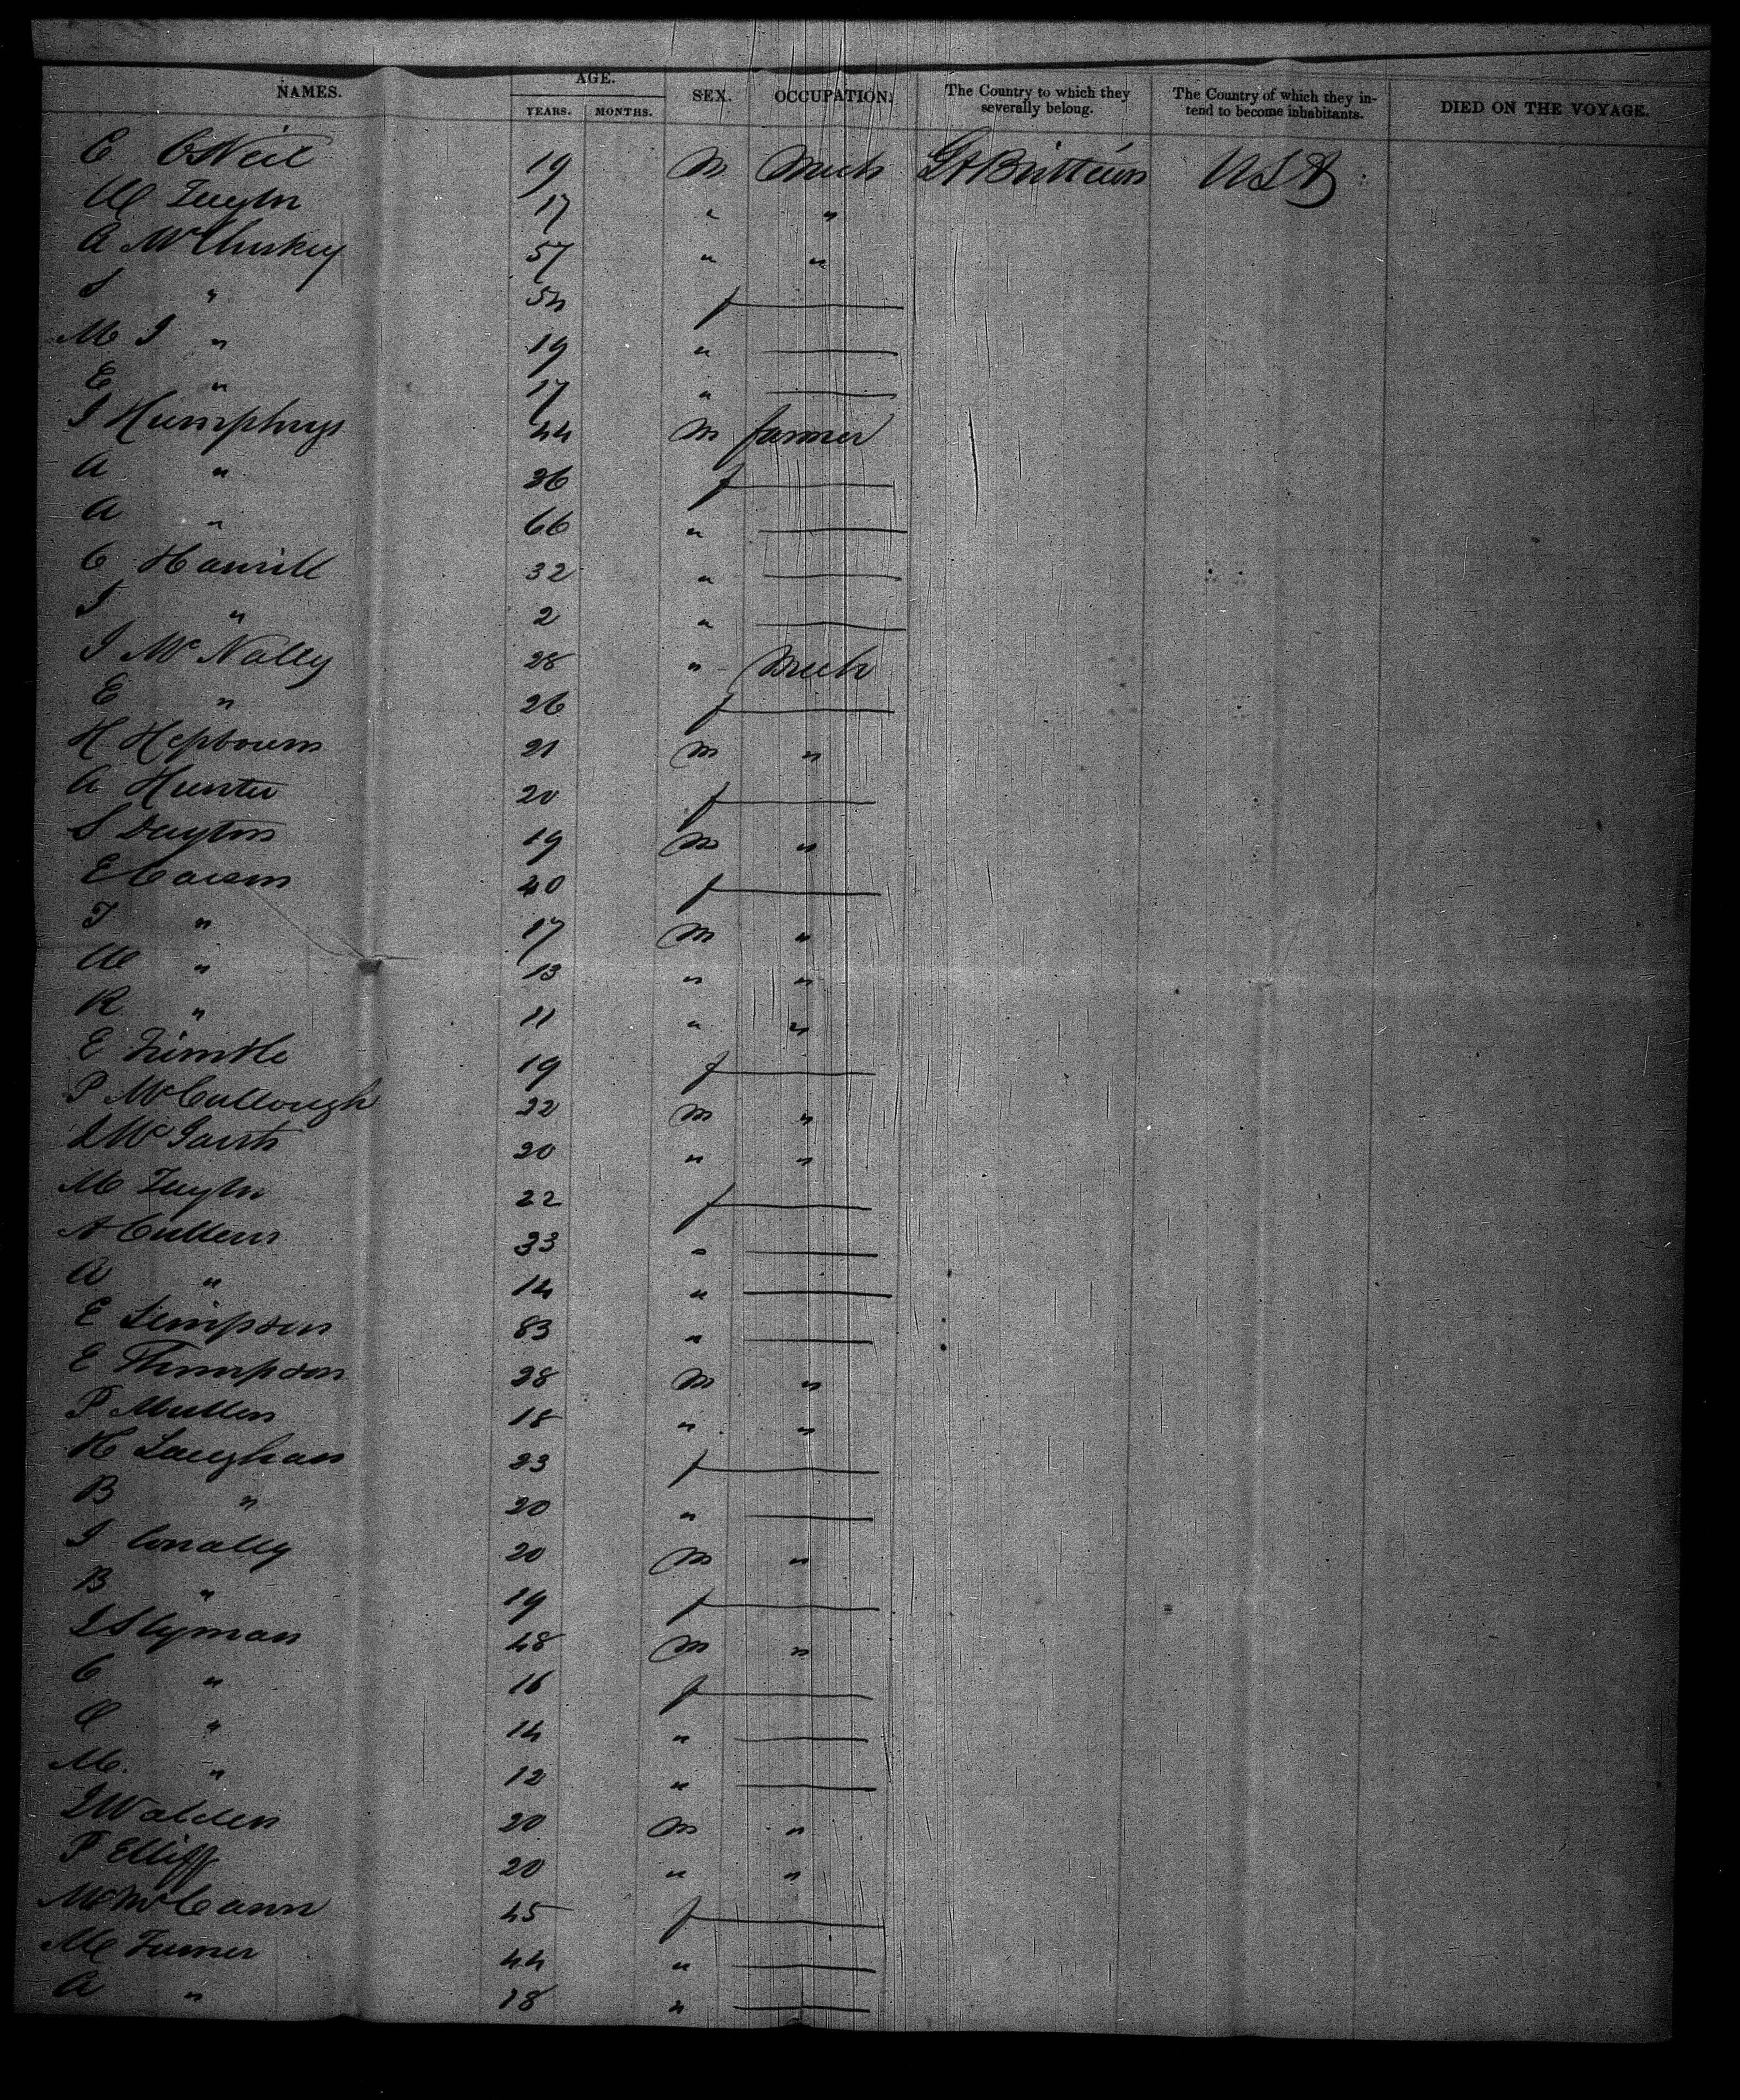 NAMES. AGE. YEARS. MONTHS. SEX. OCCUPATION. The Country to which they severally belong. The Country of which they intend to become inhabitants. DIED ON THE VOYAGE.
E O'Neil 19 m Mech Gt Brittain USA
17 " "
A McCluskey 57 " "
S " 54 f
M J " 19 "
E " 17 "
J Humphrys 44 m farmer
A " 36 f
A " 66 "
C Hamill 32 "
J " 2 "
J McNally 28 " Mech
E " 26 f
H Hepbourn 21 m "
A Hunter 20 f
S Dayton 19 m "
E Carson 40 f
T " 17 m "
" 13 " "
R " 11 " "
E 19 f
P McCullough 22 m "
20 " "
M 22 f
A Cullens 33 "
A " 14 "
E Simpson 83 "
E Thompson 28 m "
P Mullen 18 " "
H Laughan 23 f
B " 20 "
J Conally 20 m "
B " 19 f
J Slyman 48 m "
C " 16 f
" 14 "
M. " 12 "
J Walden 20 m "
P Elliff 20 " "
M McCann 45 f
M Turner 44 "
A " 18 "